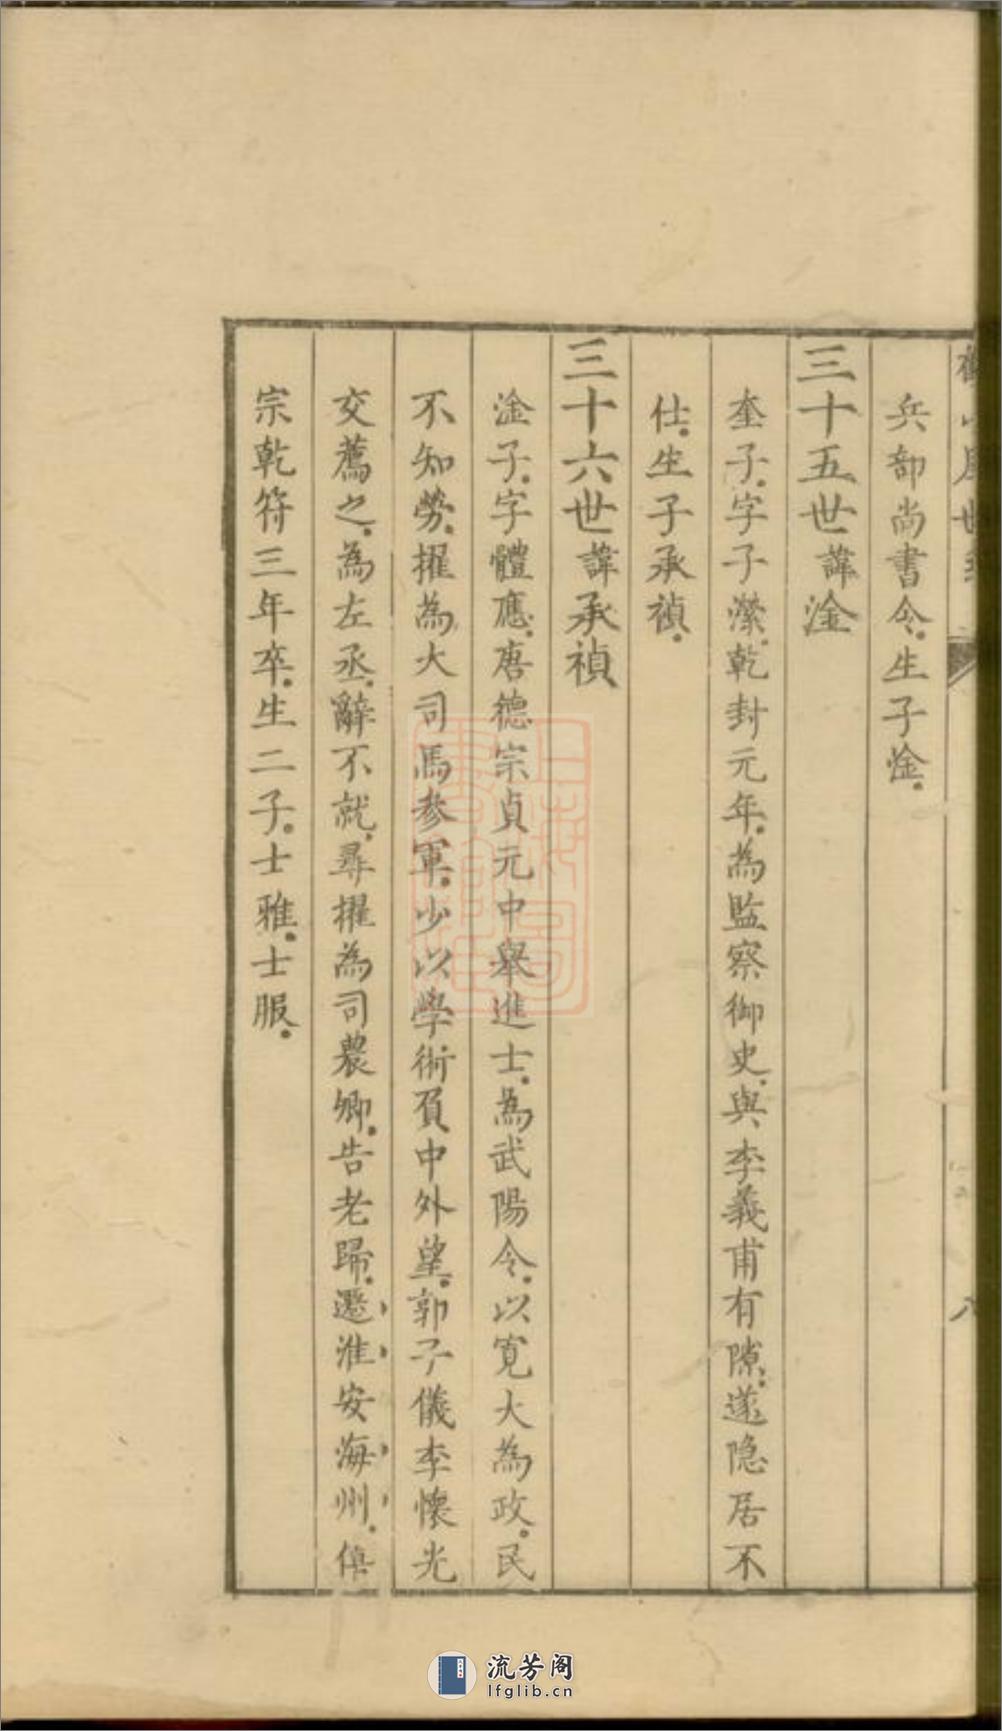 兵部尚書令。生子惍。
三十五世諱淦
奎子。字子潆。乾封元年。為監察御史。與李義甫有隙。遂隐居不
仕。生子承禎。
三十六世諱承禎
淦子。字體應。唐德宗貞元中舉進士。為武陽令。以寬大為政。民
不知勞。擢為大司馬參軍。少以學術負中外望。郭子儀李懷光
交薦之。為左丞。辭不就。尋擢為司農卿。告老歸。遷淮安海州。僖
宗乾符三年卒。生二子。士雅。士服。
八
流芳阁
lfglib.cn